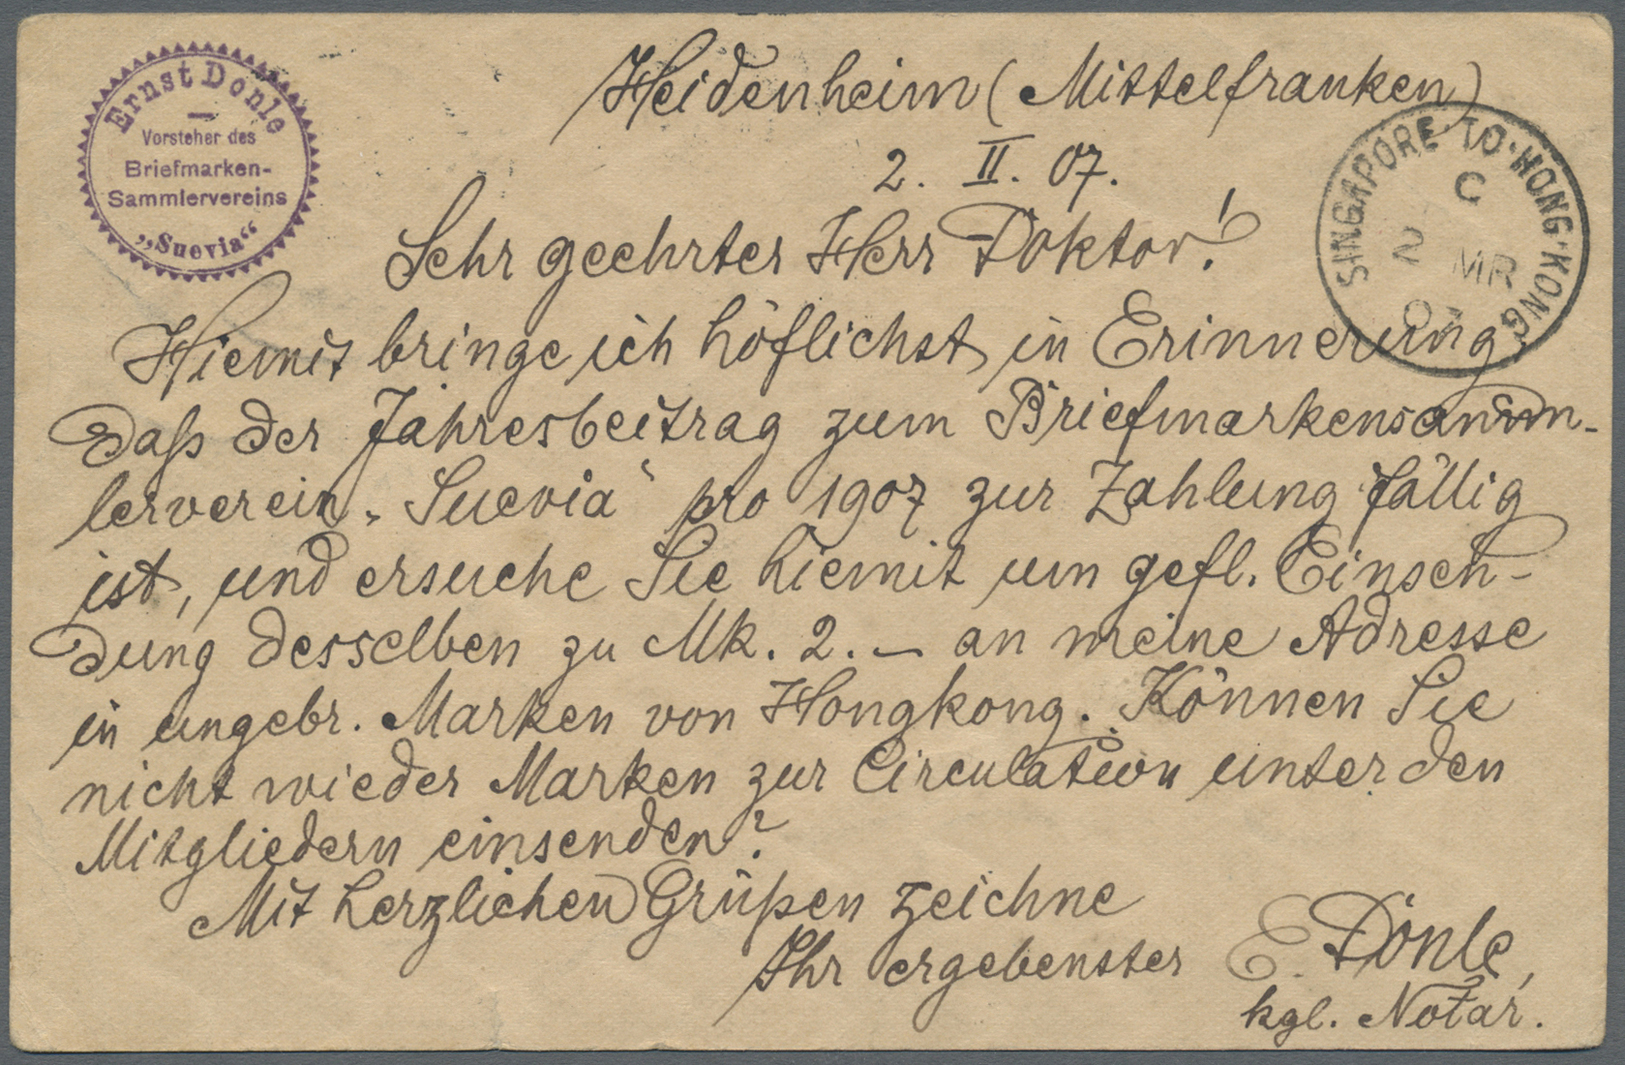 Ernst Donle
Vorsteher des
Briefmarken-
Sammlervereins
„Suevia“
Heidenheim (Mittelfranken)
2. II. 07.
SINGAPORE TO HONG·KONG
C
2 MR
07
Sehr geehrter Herr Doktor!
Hiemit bringe ich höflichst in Erinnerung,
daß der Jahresbeitrag zum Briefmarkensamm-
lerverein „Suevia“ pro 1907 zur Zahlung fällig
ist, und ersuche Sie hiemit um gefl. Einsen-
dung desselben zu Mk. 2.— an meine Adresse
in ungebr. Marken von Hongkong. Können Sie
nicht wieder Marken zur Circulation unter den
Mitgliedern einsenden?
Mit herzlichen Grüßen zeichne
Ihr ergebenster E. Donle,
kgl. Notar.